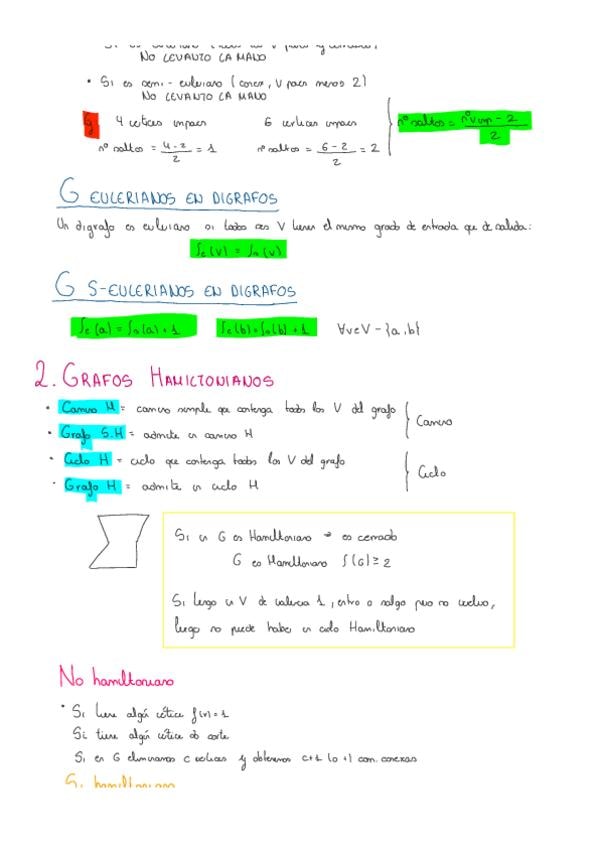 NO LEVANTO LA MANO
• Si es semi-euleriano (conex, V pares menos 2)
NO LEVANTO LA MANO
Ej 4 vertices impares 6 vertices impares
nº saltos = 4-2/2 = 1 nº saltos = 6-2/2 = 2 nº saltos = nºV imp - 2/2
G EULERIANOS EN DIGRAFOS
Un digrafo es euleriano si todos sus V tienen el mismo grado de entrada que de salida:
δe(v) = δs(v)
G S-EULERIANOS EN DIGRAFOS
δe(a) = δs(a) + 1 δe(b) = δs(b) + 1 ∀v∈V - {a,b}
2. GRAFOS HAMILTONIANOS
• Camino H = camino simple que contenga todos los V del grafo
• Grafo S.H = admite un camino H
Camino
• Ciclo H = ciclo que contenga todos los V del grafo
• Grafo H = admite un ciclo H
Ciclo
Si un G es Hamiltoniano → es cerrado
G es Hamiltoniano δ(G) ≥ 2
Si tengo un V de valencia 1, entro o salgo pero no vuelvo,
luego no puede haber un ciclo Hamiltoniano
No hamiltoniano
• Si tiene algún vértice δ(v)=1
Si tiene algún vértice de corte
Si en G eliminamos c vertices y obtenemos c+1 (o +) com. conexas
Si hamiltoniano